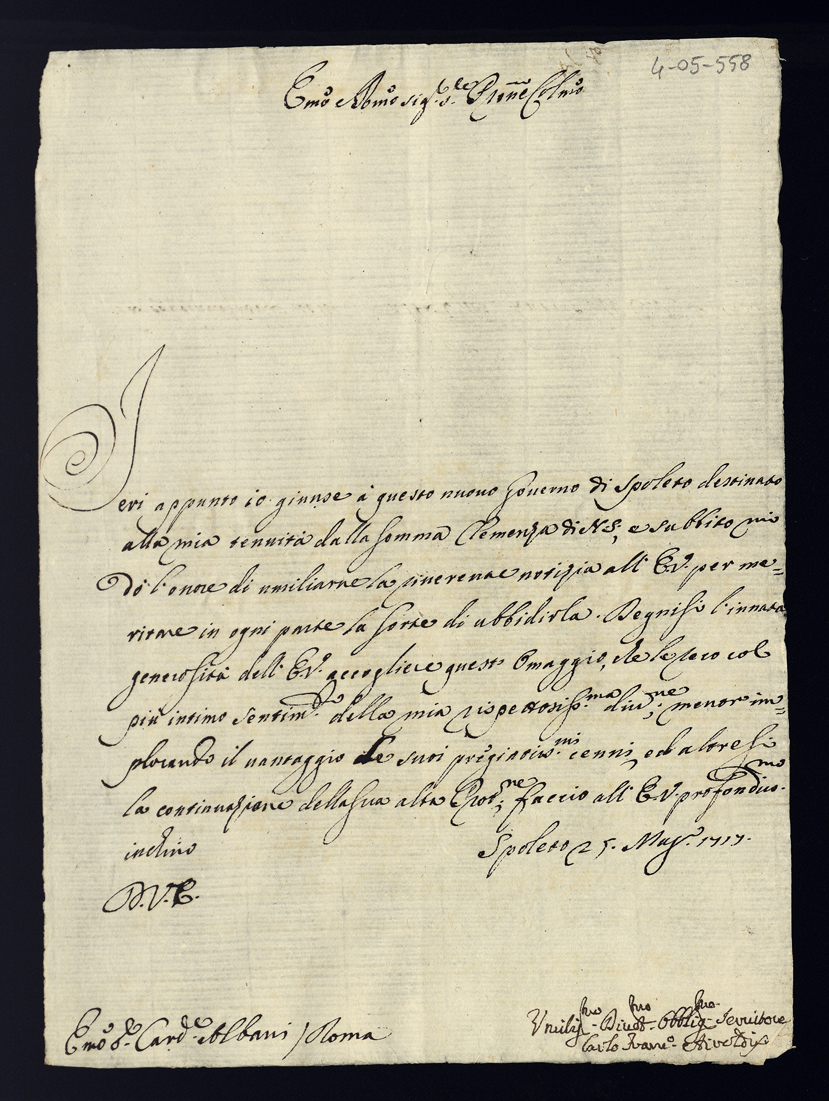 4-05-558
Emo e Rmo Sig.r S.re Prōne Colmo
Ieri appunto io giunse à questo nuovo Governo di Spoleto destinato
alla mia tenuità dalla somma Clemenza di N.S., e subbito mi
dò l'onore di umiliarne la riverente notizia all' E.V. per me=
ritare in ogni parte la sorte di ubbidirla. Degnisi l'innata
generosità dell' E.V. accogliere questo Omaggio, che le reco col
più intimo sentim.to della mia rispettosiss.ma div.ne, mentre im=
plorando il vantaggio de suoi pregiatiss.mi cenni, ed altresi
la continuazione della sua alta Prot.ne, faccio all' E.V. profondiss.mo
inchino
Spoleto 25. Mag.o 1717.
D.V.E.
Emo S.r Card.le Albani / Roma
Umiliss.mo Divot.mo Obblig.mo Servitore
Carlo